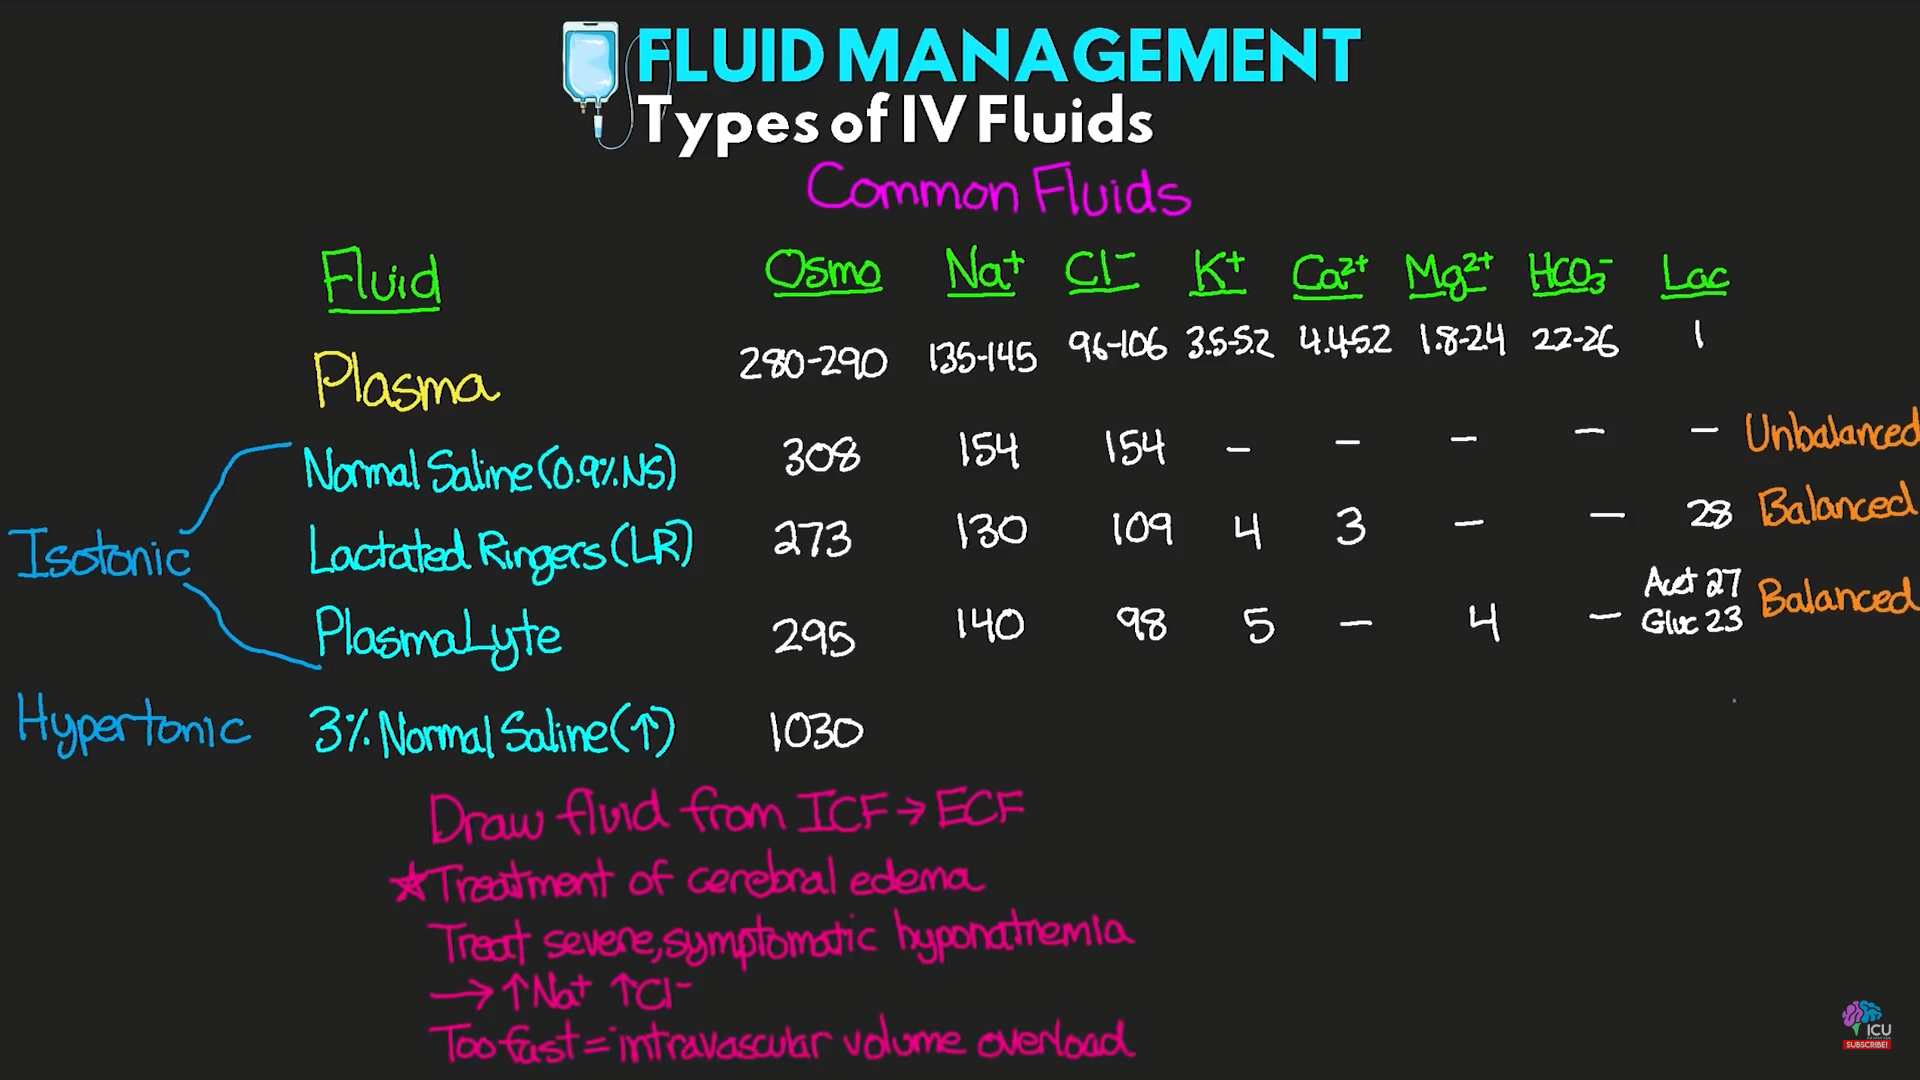 FLUID MANAGEMENT
Types of IV Fluids
Common Fluids
Fluid Osmo Na⁺ Cl⁻ K⁺ Ca²⁺ Mg²⁺ HCO₃⁻ Lac
Plasma 280-290 135-145 96-106 3.5-5.2 4.4-5.2 1.8-2.4 22-26 1
Normal Saline (0.9% NS) 308 154 154 - - - - - Unbalanced
Isotonic
Lactated Ringers (LR) 273 130 109 4 3 - - 28 Balanced
PlasmaLyte 295 140 98 5 - 4 - Acet 27 Gluc 23 Balanced
Hypertonic 3% Normal Saline (↑) 1030
Draw fluid from ICF → ECF
☆ Treatment of cerebral edema
Treat severe, symptomatic hyponatremia
→ ↑Na⁺ ↑Cl⁻
Too fast = intravascular volume overload
ICU
SUBSCRIBE!